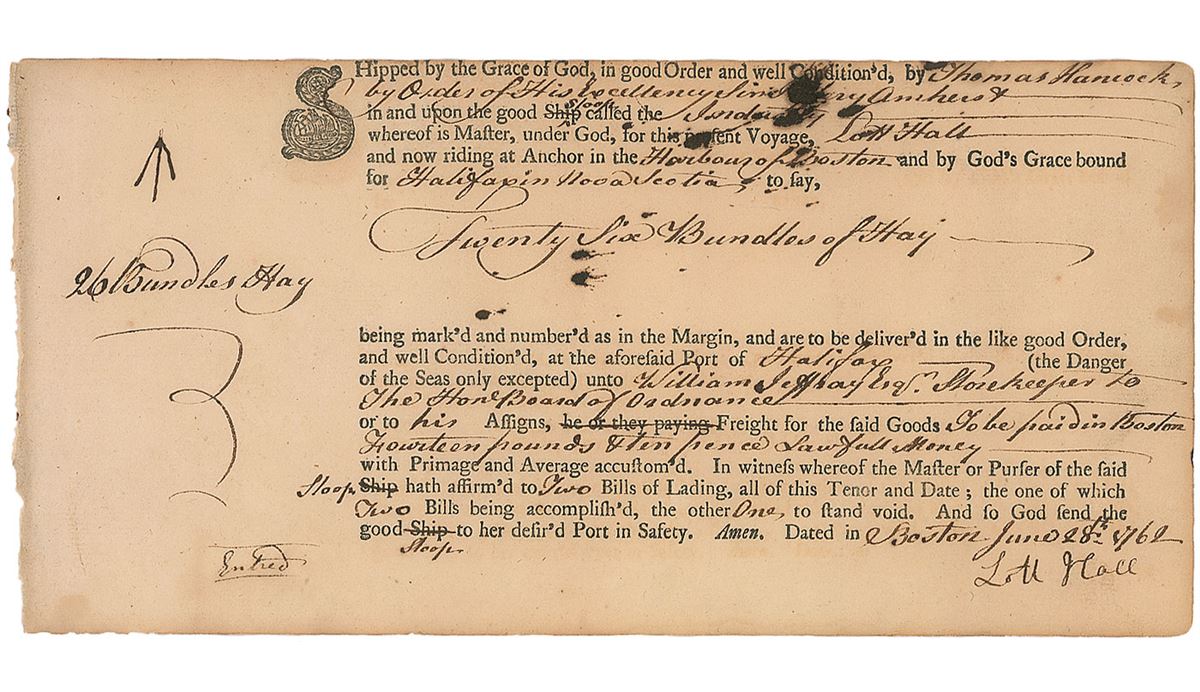 SHipped by the Grace of God, in good Order and well Condition'd, by Thomas Hancock
by Order of His Excellency Amherst
in and upon the good Ship Sloop called the
whereof is Master, under God, for this present Voyage, Lott Hall
and now riding at Anchor in the Harbour of Boston and by God's Grace bound
for Halifax in Nova Scotia, to say,
Twenty Six Bundles of Hay
26 Bundles Hay
being mark'd and number'd as in the Margin, and are to be deliver'd in the like good Order,
and well Condition'd, at the aforesaid Port of Halifax (the Danger
of the Seas only excepted) unto William Jeffray Esqr. Storekeeper to
The Honle Board of Ordnance
or to his Assigns, he or they paying Freight for the said Goods To be paid in Boston
Fourteen pounds & ten pence Lawfull Money
with Primage and Average accustom'd. In witness whereof the Master or Purser of the said
Sloop Ship hath affirm'd to Two Bills of Lading, all of this Tenor and Date; the one of which
Two Bills being accomplish'd, the other One, to stand void. And so God send the
good Ship to her desir'd Port in Safety. Amen. Dated in Boston June 28th. 1762
Sloop
Entred
Lott Hall